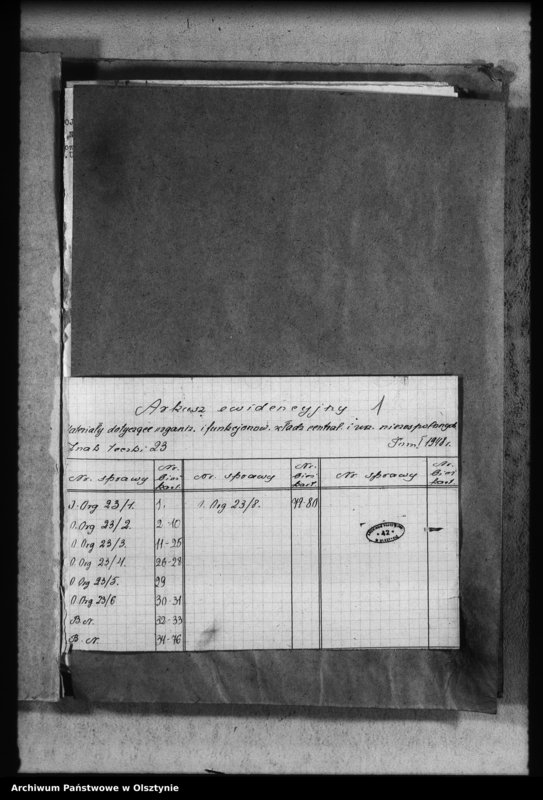 Arkusz ewidencyjny 1
Materiały dotyczące organiz. i funkcjonow. władz central. i urz. niezespolonych
Znak teczki 23 1948 r.
Nr. sprawy Nr. bież. kart. Nr. sprawy Nr. bież. kart. Nr sprawy Nr. bież. kart.
O. Org 23/1. 1. O. Org 23/8. 77-80
O. Org 23/2 2-10
O. Org 23/3. 11-25
O. Org 23/4. 26-28
O. Org 23/5. 29
O. Org 23/6 30-31
B. N. 32-33
B. N. 34-76
* 42 *
Archiwum Państwowe w Olsztynie